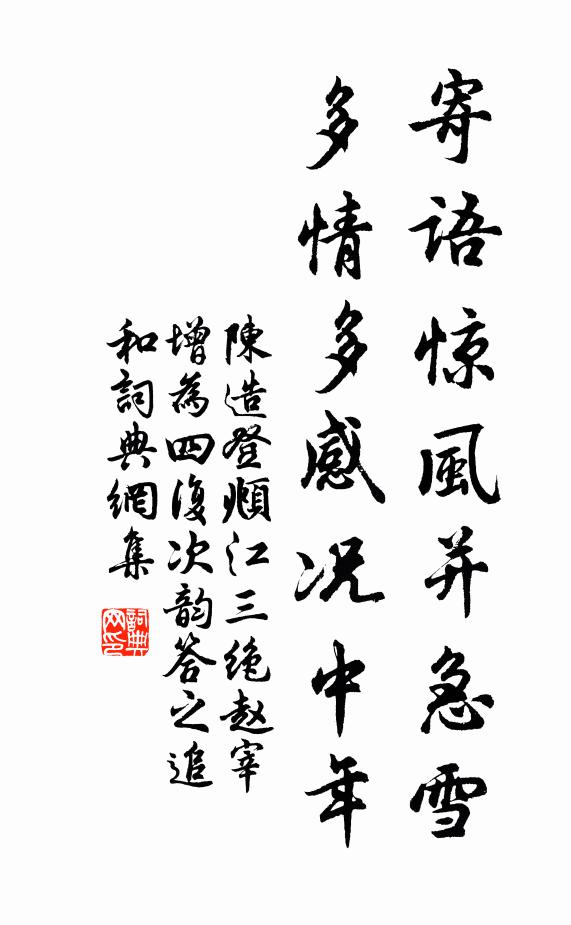 寄語惊風并急雪
多情多感况中年
陳造登順江三絶赵宰
增為四復次韵答之追
和詞典網集
詞典网印